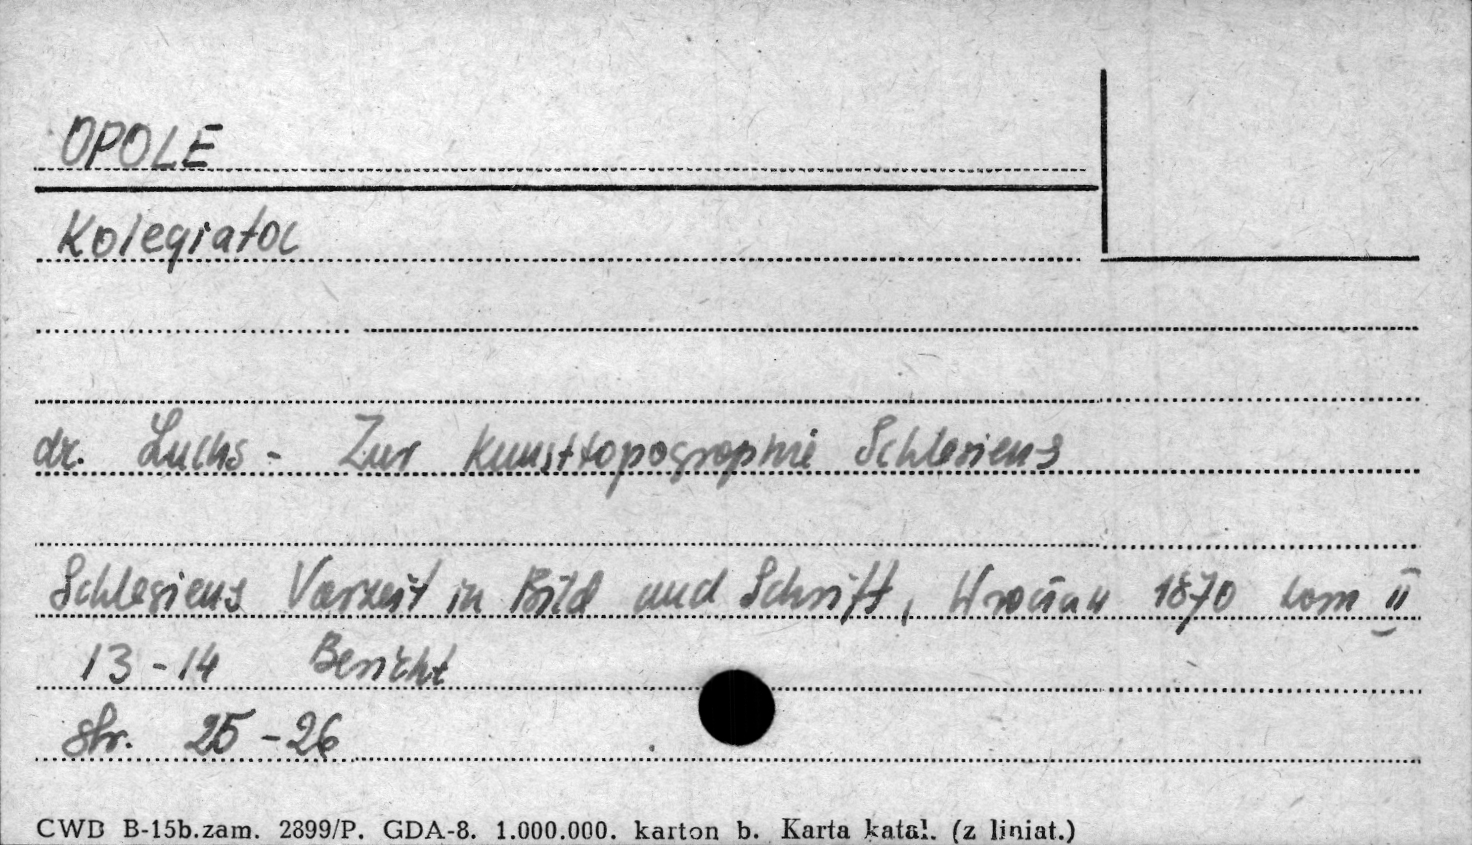 OPOLE
Kolegiata
dr. Luchs - Zur Kunsttopographie Schlesiens
Schlesiens Vorzeit in Bild und Schrift, Wrocław 1870 tom II
13-14 Bericht
str. 25-26
CWD B-15b.zam. 2899/P. GDA-8. 1.000.000. karton b. Karta katal. (z liniat.)